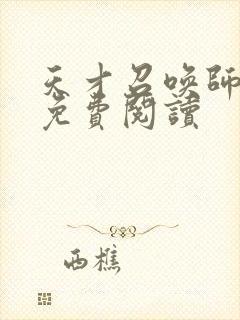 天才召唤師
免費閱讀
西樵